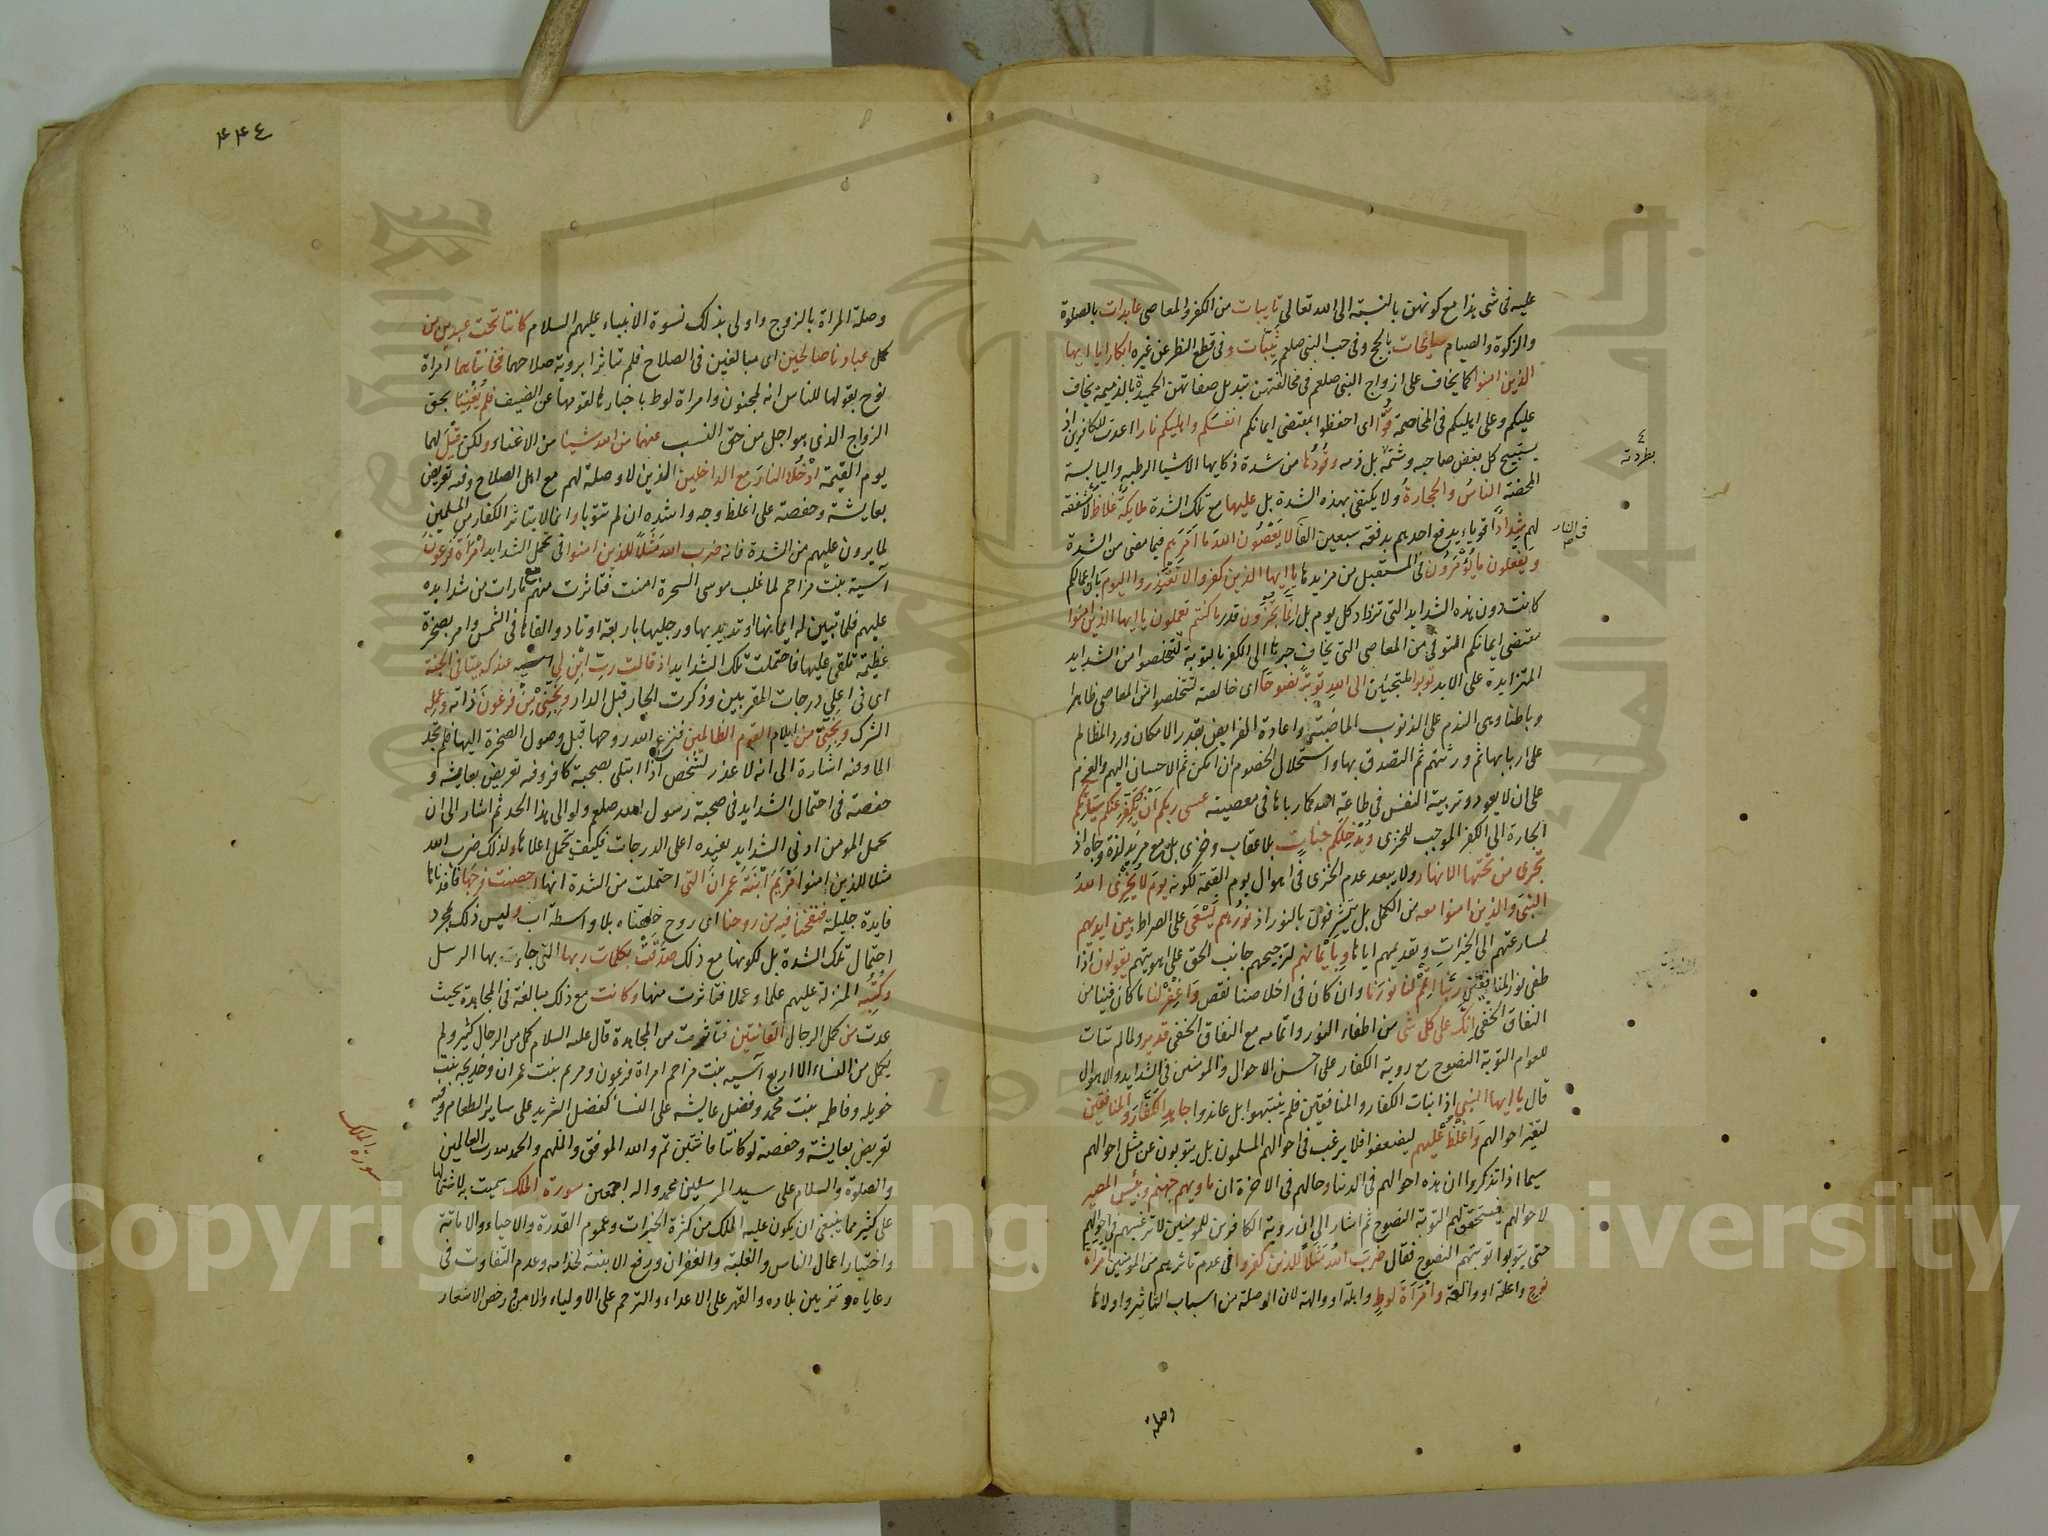 عليه فى شى هذا مع كونهن بالنسبة الى الله تعالى تايبات من الكفر والمعاصى عابدات بالصلوة
والزكوة والصيام سايحات بالحج وفى حب النبى صلعم ثيبات وفى قطع النظر عن غيره ابكارا يا ايها
الذين امنوا كما يخاف على ازواج النبى صلعم فى مخالفتهن تبديل صفاتهن الحميدة بالذميمة يخاف
عليكم وعلى اهليكم فى المخاصمة قوا اى احفظوا بمقتضى ايمانكم انفسكم واهليكم نارا اعدت للكافرين اذ
يستبيح كل بغض صاحبه وشتمه بل ذمه وقودها من شدة ذكايها الاشيا الرطبة واليابسة
المحضة الناس والحجارة ولا يكتفى بهذه الشدة بل عليها مع تلك الشدة ملايكة غلاظ لا شفقة
لهم شدادا قوياء يدفع احدهم بدفعة سبعين الفا لا يعصون الله ما امرهم فيما مضى من الشدة
ويفعلون ما يؤمرون فى المستقبل من مزيدها يا ايها الذين كفروا لا تعتذروا اليوم بان اعمالكم
كانت دون هذه الشدايد التى تزداد كل يوم بل انما تجزون قدر ما كنتم تعملون يا ايها الذين امنوا
مقتضى ايمانكم التوقى من المعاصى التى يخاف جرها الى الكفر بالتوبة لتتخلصوا من الشدايد
المتزايدة على الابد توبوا ملتجئين الى الله توبة نصوحا اى خالصة لتتخلصوا من المعاصى ظاهرا
وباطنا وهى الندم على الذنوب الماضية واعادة الفرايض بقدر الامكان ورد المظالم
على اربابها ثم ورثتهم ثم التصدق بها واستحلال الخصوم ان امكن ثم الاحسان اليهم والعزم
على ان لا يعود وتربية النفس فى طاعة الله كما رباها فى معصيته عسى ربكم ان يكفر عنكم سيئاتكم
الجارة الى الكفر الموجب للخزى ويدخلكم جنات بلا عقاب وخزى بل مع مزيد لذة وجاه اذ
تجرى من تحتها الانهار ولا يبعد عدم الخزى فى اهوال يوم القيمة لكونه يوم لا يخزى الله
النبى والذين امنوا معه من الكمل بل يتشرفون بالنور اذ نورهم يسعى على الصراط بين ايديهم
لمسارعتهم الى الخيرات وتقديمهم اياها وبايمانهم لترجيحهم جانب الحق على اهويتهم يقولون اذا
طفى نور المنافقين ربنا اتمم لنا نورنا وان كان فى اخلاصنا نقص واغفر لنا ما كان فينا من
النفاق الخفى انك على كل شى من اطفاء النور واتمامه مع النفاق الخفى قدير ولما لم تتات
للعوام التوبة النصوح مع روية الكفار على احسن الاحوال والمومنين فى الشدايد والاهوال
قال يا ايها النبى اذا بنات الكفار والمنافقين فلم ينتبهوا بل عاندوا جاهد الكفار والمنافقين
لتغير احوالهم واغلظ عليهم ليضعفوا فلا يرغب فى احوالهم المسلمون بل يتوبون عن مثل احوالهم
سيما اذا تذكروا ان هذه احوالهم فى الدنيا وحالهم فى الاخرة ان ماويهم جهنم وبئس المصير
لاحوالهم فيتحقق لهم التوبة النصوح ثم اشار الى ان روية الكافرين للمومنين لا ترغبهم فى احوالهم
حتى يتوبوا توبتهم النصوح فقال ضرب الله مثلا للذين كفروا فى عدم تاثرهم من المومنين امراة
نوح واعلة او والغة وامراة لوط وابلة او والهة لان الوصلة من اسباب التاثر واولاها
بطردته
فى النار
وصلة
٤٤٤
وصلة المراة بالزوج واولى بذلك نسوة الانبياء عليهم السلام كانتا تحت عبدين من
كل عبادنا صالحين اى مبالغين فى الصلاح فلم تتاثرا بروية صلاحهما فخانتاهما امراة
نوح بقولها للناس انه لمجنون وامراة لوط باخبارها لقومها عن الضيف فلم يغنيا بحق
الزواج الذى هو اجل من حق النسب عنهما من الله شيئا من الاغناء ولكن قيل لهما
يوم القيمة ادخلا النار مع الداخلين الذين لا وصلة لهم مع اهل الصلاح وفيه تعريض
بعايشة وحفصة على اغلظ وجه واشده ان لم تتوبا وانما لا يتاثر الكفار من المسلمين
لما يرون عليهم من الشدة فانه ضرب الله مثلا للذين امنوا فى تحمل الشدايد امراة فرعون
آسية بنت مزاحم لما غلب موسى السحرة امنت فتاثرت منهم مع ما رات من شدايده
عليهم فلما تبين له ايمانها اوتد يديها ورجليها باربعة اوتاد والقاها فى الشمس وامر بصخرة
عظيمة تلقى عليها فاحتملت تلك الشدايد اذ قالت رب ابن لى عندك بيتا فى الجنة
اى فى اعلى درجات المقربين وذكرت الجار قبل الدار ونجنى من فرعون ذاته وعمله
الشرك ونجنى من ايلام القوم الظالمين فنزع الله روحها قبل وصول الصخرة اليها فلم تجد
الما وفيه اشارة الى انه لا عذر لشخص اذا ابتلى بصحبة كافر وفيه تعريض بعايشة و
حفصة فى احتمال الشدايد فى صحبة رسول الله صلعم ولو الى هذا الحد ثم اشار الى ان
تحمل المومن ادنى الشدايد يفيده اعلى الدرجات فكيف تحمل اعلاها ولذلك ضرب الله
مثلا للذين امنوا مريم ابنة عمران التى احتملت من الشدة انها احصنت فرجها فافدناها
فايدة جليلة فنفخنا فيه من روحنا اى روح خلقناه بلا واسطة اب وليس ذلك بمجرد
احتمال تلك الشدة بل لكونها مع ذلك صدقت بكلمات ربها التى جاءت بها الرسل
وكتبه المنزلة عليهم علما وعملا فتاثرت منها وكانت مع ذلك مبالغة فى المجاهدة بحيث
عدت من كمل الرجال القانتين فتاثرت من المجاهدة قال عليه السلام كمل من الرجال كثير ولم
يكمل من النساء الا اربع آسيه بنت مزاحم امراة فرعون ومريم بنت عمران وخديجة بنت
خويله وفاطمه بنت محمد وفضل عايشه على النسا كفضل الثريد على ساير الطعام وفيه
تعريض بعايشة وحفصة لو كانتا قانتتين تم والله الموفق والملهم والحمد لله رب العالمين
والصلوة والسلام على سيد المرسلين محمد واله اجمعين سورة الملك سميت به لاشتمالها
على كثير مما ينبغى ان يكون عليه الملك من كثرة الخيرات وعموم القدرة والاحياء والاماتة
واختبار اعمال الناس والغلبة والغفران ورفع الابنية لخدامه وعدم التفاوت فى
رعاياه وتزيين بلاده والقهر على الاعداء والترحم على الاولياء والامن ورخص الاسعار
سورة الملك
Copyright © King Saud University